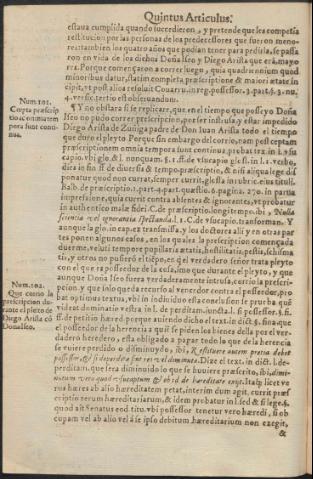 Quintus Articulus.
estaua cumplida quando sucedieron, y pretende que sea compesia
restitucion por las personas de los predecessores que fueron meno-
res: tambien los quatro años que podian tener para pedirla, se passa
ron en vida de los dichos Doña Iseo y Diego Arista que erã, mayo
res. Porque començaron a correr luego, quia quadriennium quod
minoribus datur, statim completa præscriptione & maiori ætate in
cipit, vt post alios resoluit Couarru. in reg. possessor. 3. part. §. 3. nu.
4. versic. tertio est obseruandum.
Num. 101.
Cœpta præscrip
tio ac omni tem
pora sunt conti
nua.
¶ Y no obstara si se replicare, que en el tiempo que posseyo Doña
Iseo no pudo correr prescripcion, por ser intrusa, y estar impedido
Diego Arista de Zuñiga padre de Don Iuan Arista todo el tiempo
que duro el pleyto. Porque sin embargo del corrio, nam post cœptam
præscriptionem omnia tempora sunt continua, probat tex. in l. 3. de vsu
capio. vbi glo. & l. nonquam. §. 1. ff. de vsucapio glos. in l. 2. verbo,
dica in fin ff. de diuersis & tempo. præscriptio, & nisi aliqua lege dis
ponatur quod non currat, semper currit, glossa in rubric. eius tituli.
Balb. de præscriptio. 1. part. 4. part. quæstio. 6. pagina. 270. in partiu
impressis, quia currit contra absentes & ignorantes, vt probatur
in authentico malæ fidei C. de præscriptio. longi tempo. ibi, Nulla
scientia vel ignorantia spectanda. l. 1. C. de vsucapio. transforman. Y
aunque la glo. in cap. ex transmissa, y los doctores alli y en otras par
tes ponen algunos casos, en los quales la prescripcion començada
duerme, veluti tempore pupillaris ætatis, hostilitatis, pestis, schisma
tis, y otros no pusierõ el tiẽpo, en q̃ el verdadero señor trata pleyto
con el que es possedor de la cosa, imo que durante el pleyto, y que
Num. 102.
Que corrio la
prescripcion du-
rante el pleito de
Diego Arista cõ
Doña Iseo.
aunque Doña Iseo fuera verdaderamente intrusa, corrio la prescri-
pcion, y que solo queda recurso al vencedor contra el possessor, pro
bat optimus textus, vbi in indiuiduo esta conclusion se prueba. qué
videat dominatis vestra in l. de perditum. iuncta. l. si possessor. §. fin.
ff. de petitio hæred. porque auiendo dicho el text. in dict. §. fin. que
el possessor de la herencia a quiẽ se piden los bienes della por el ver-
dadero heredero, esta obligado a pagar todo lo que de la herencia
se vuiere perdido o diminuydo, ibi, Restituere autem pretia debet
possessor, & si deperdita sint res vel diminutæ. Dize el text. in dict. l. de-
perditum. que sera diminuido lo que se huuiere præscrito, ibi, dimi-
nutum vero quod vsucaptum & ob id de hæreditate exijt. Itaq; licet ve
rus hæres ab alio hæreditatem petat, interim dum agit, currit præs
criptio rerum hæreditariarum, & idem probatur in l. sed & si lege. §.
quod ait Senatus eod. titu. vbi possessor tenetur vero hæredi, si ob
cupam vel ab alio vel a se ipso debitum hæreditarium non exegit,
&